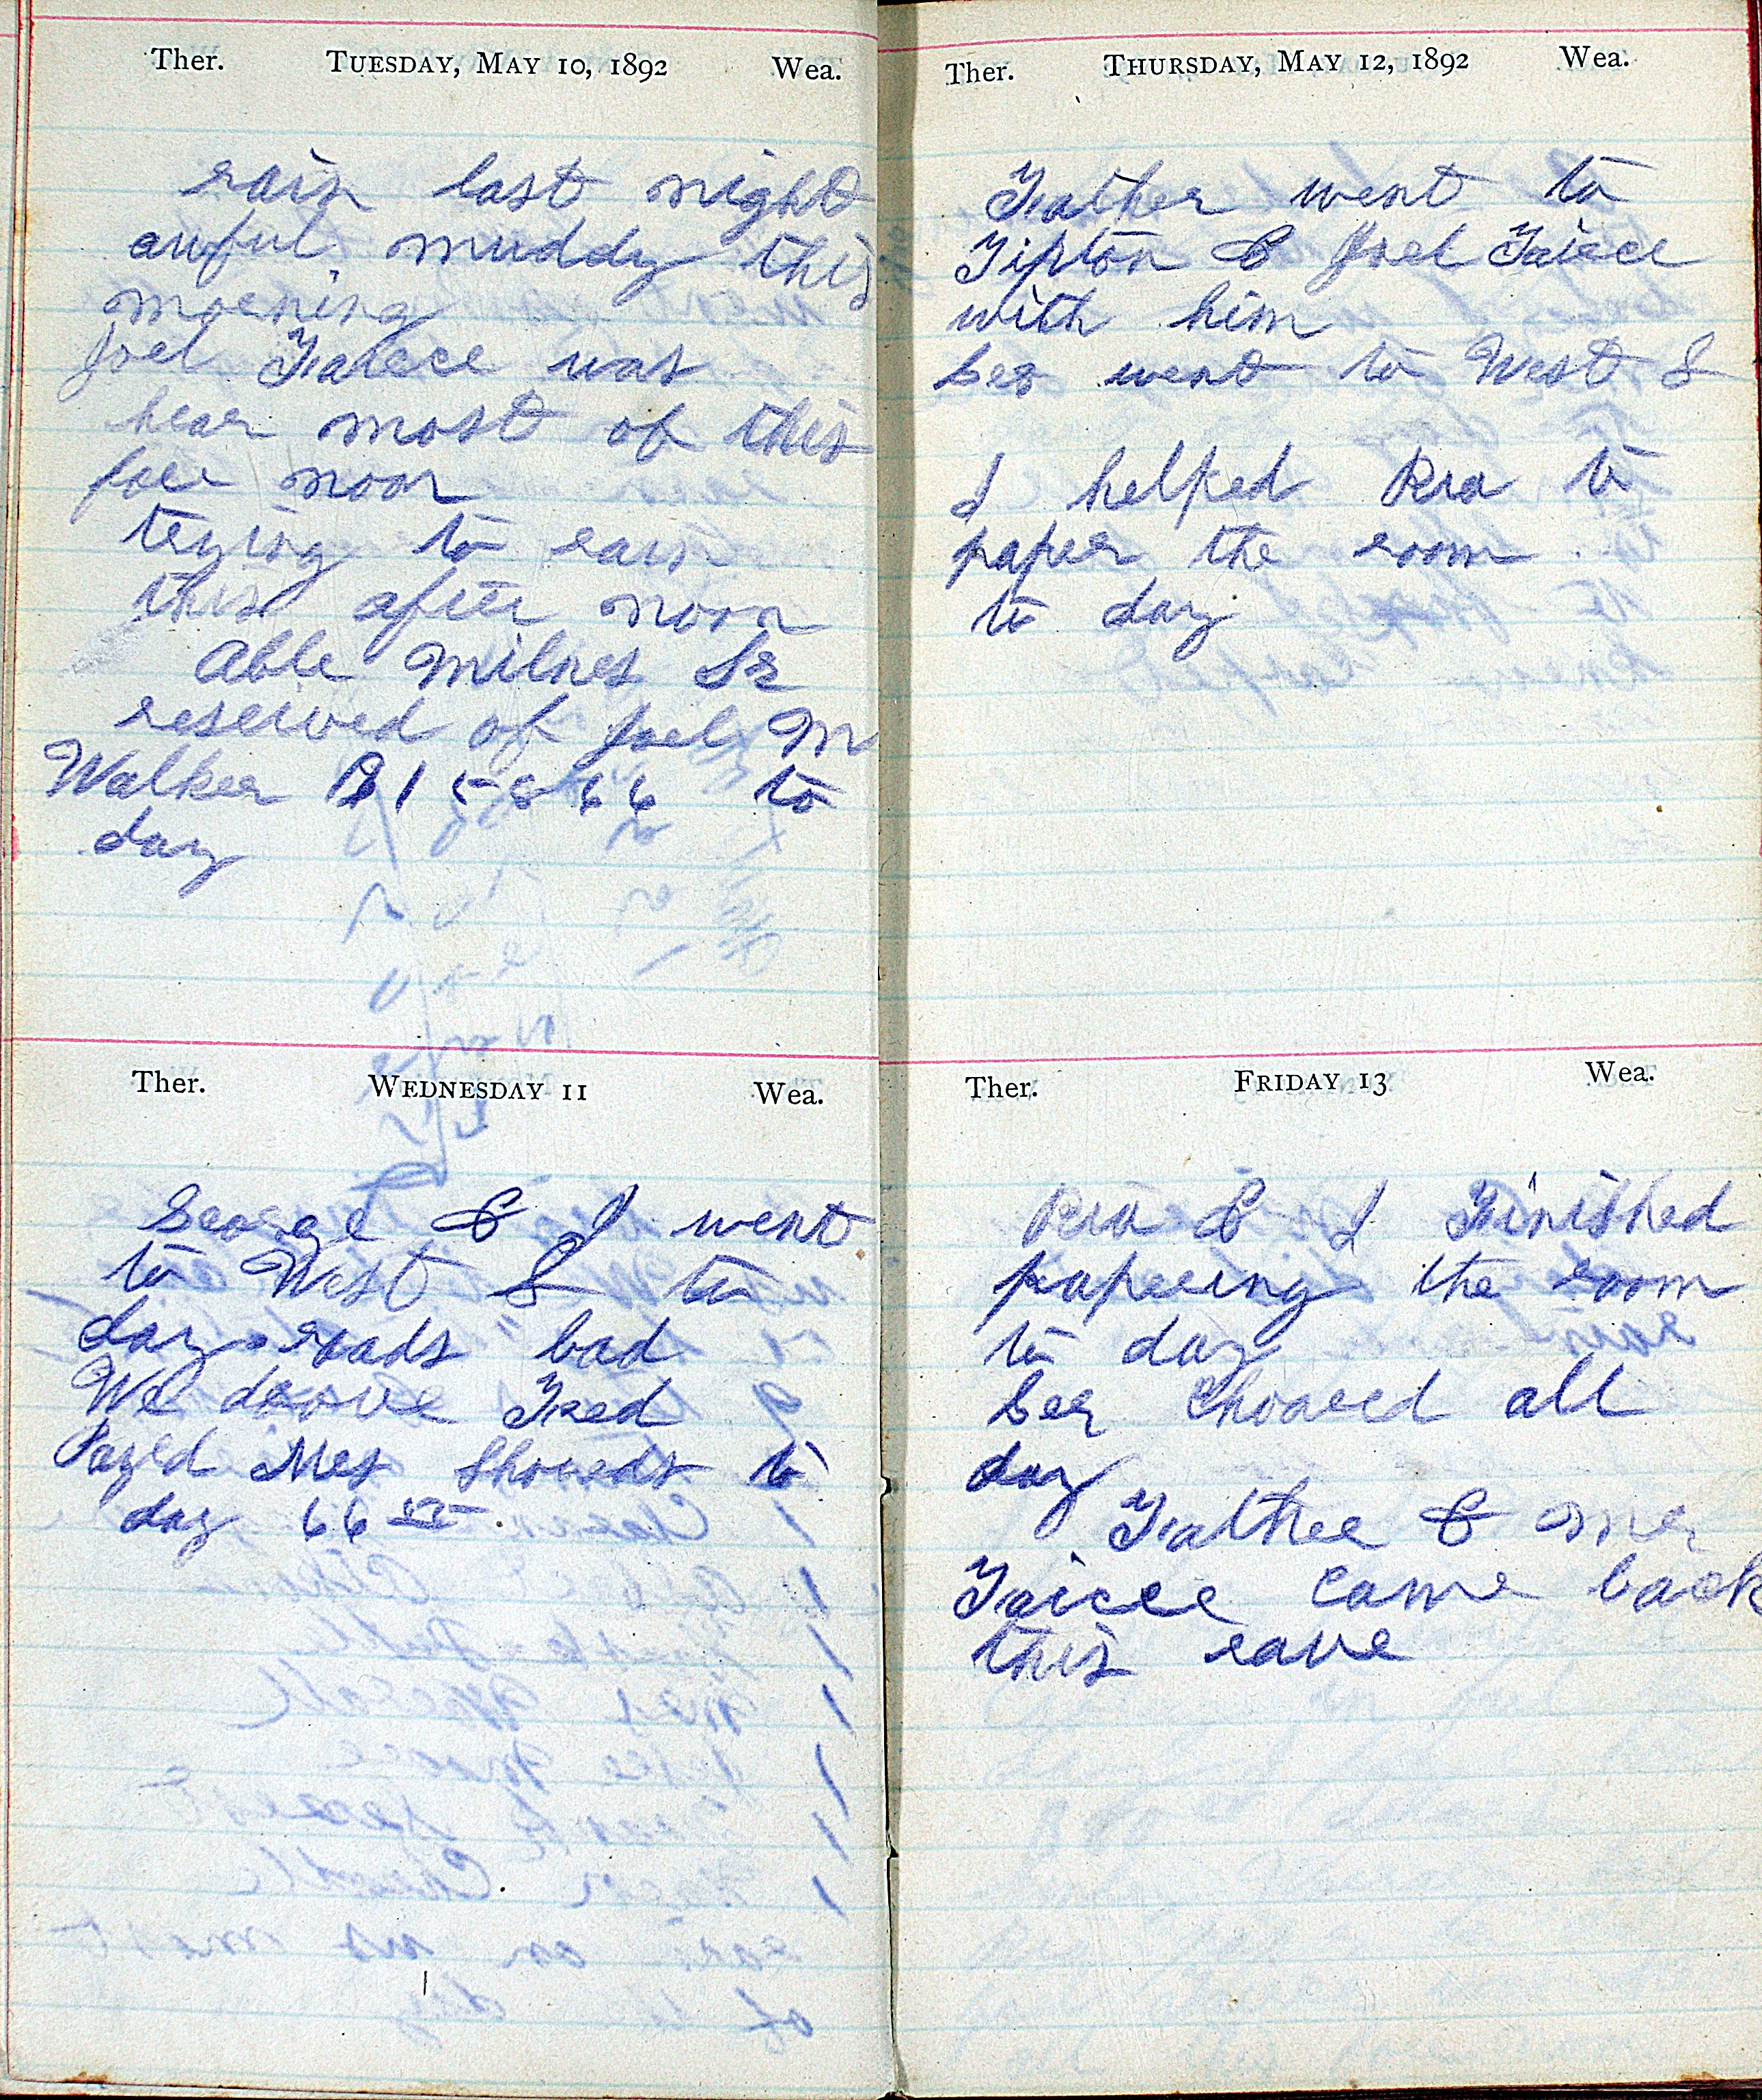 Ther. TUESDAY, MAY 10, 1892 Wea.
rain last night
awful muddy this
morning
Joel Farece was
hear most of this
fore noon
trying to rain
this after noon
Able Milnes Sr
reserved of Joel M
Walker $158 66 to
day
Ther. WEDNESDAY 11 Wea.
George & I went
to West L to
day roads bad
We drove Fred
Payed Mrs Showeds to
day 66
Ther. THURSDAY, MAY 12, 1892 Wea.
Father went to
Tipton & Joel Fairce
with him
Geo went to West L
I helped Ria to
paper the room
to day
Ther. FRIDAY 13 Wea.
Ria & I Finished
papering the room
to day
Geo Choared all
day
Father & mr
Fairce came back
this eave